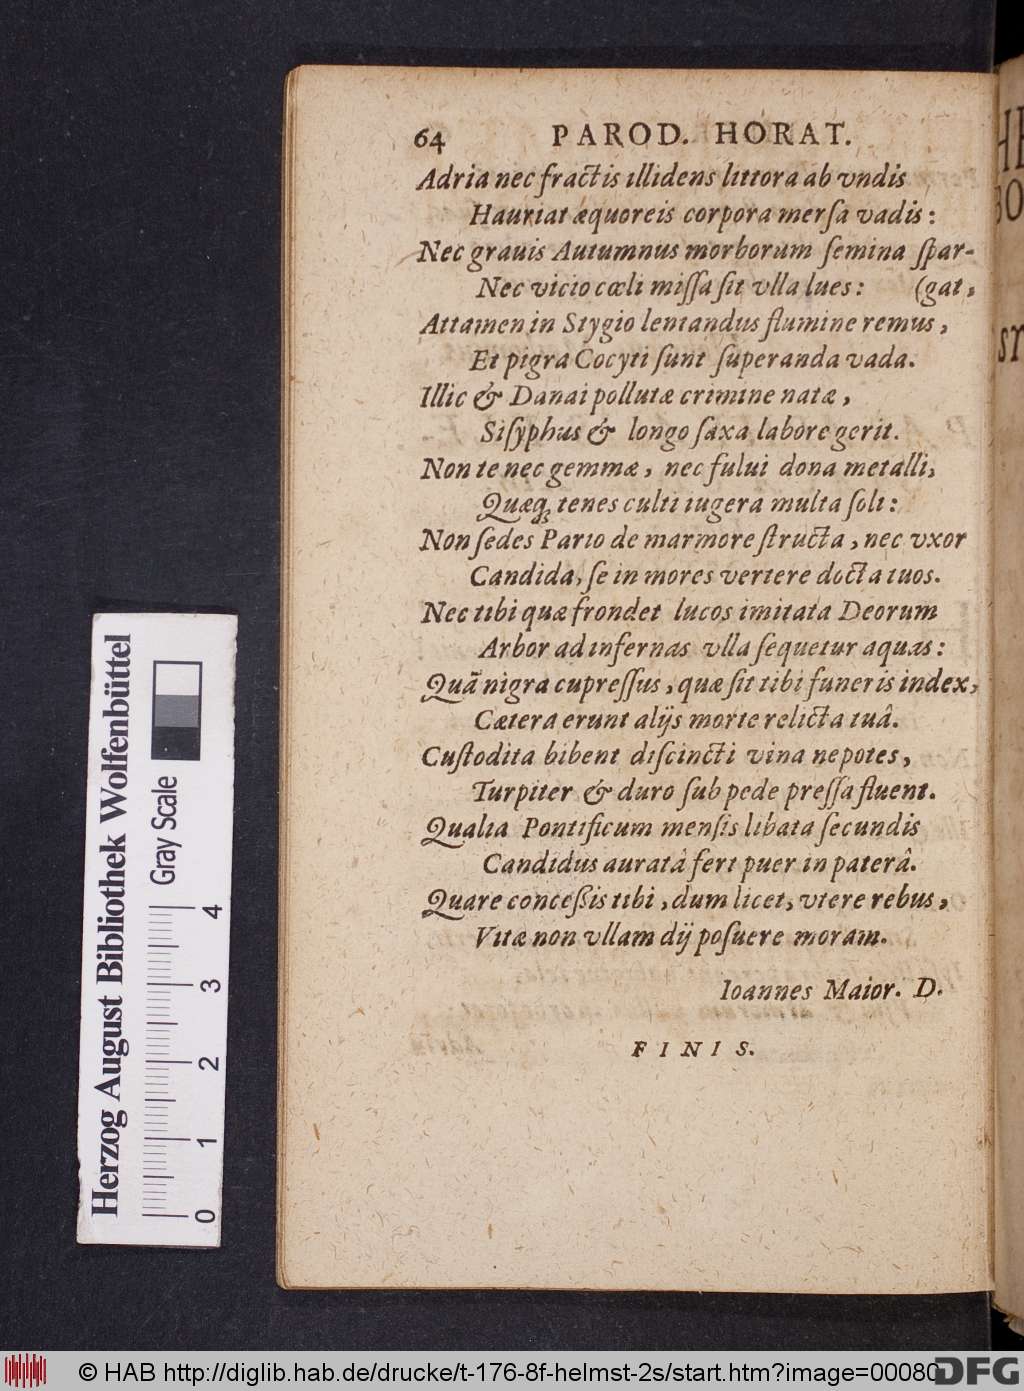 64 PAROD. HORAT.
Adria nec fractis illidens littora ab vndis
Hauriat æquoreis corpora mersa vadis:
Nec grauis Autumnus morborum semina spar-
Nec vicio cœli missa sit vlla lues: (gat,
Attamen in Stygio lentandus flumine remus,
Et pigra Cocyti sunt superanda vada.
Illic & Danai pollutæ crimine natæ,
Sisyphus & longo saxa labore gerit.
Non te nec gemmæ, nec fului dona metalli,
Quæq; tenes culti iugera multa soli:
Non sedes Pario de marmore structa, nec vxor
Candida, se in mores vertere docta tuos.
Nec tibi quæ frondet lucos imitata Deorum
Arbor ad infernas vlla sequetur aquas:
Quã nigra cupressus, quæ sit tibi funeris index,
Cætera erunt alijs morte relicta tuâ.
Custodita bibent discincti vina nepotes,
Turpiter & duro sub pede pressa fluent.
Qualia Pontificum mensis libata secundis
Candidus auratâ fert puer in paterâ.
Quare concessis tibi, dum licet, vtere rebus,
Vitæ non vllam dij posuere moram.
Ioannes Maior. D.
FINIS.
Herzog August Bibliothek Wolfenbüttel
Gray Scale
0 1 2 3 4
© HAB http://diglib.hab.de/drucke/t-176-8f-helmst-2s/start.htm?image=00080
DFG